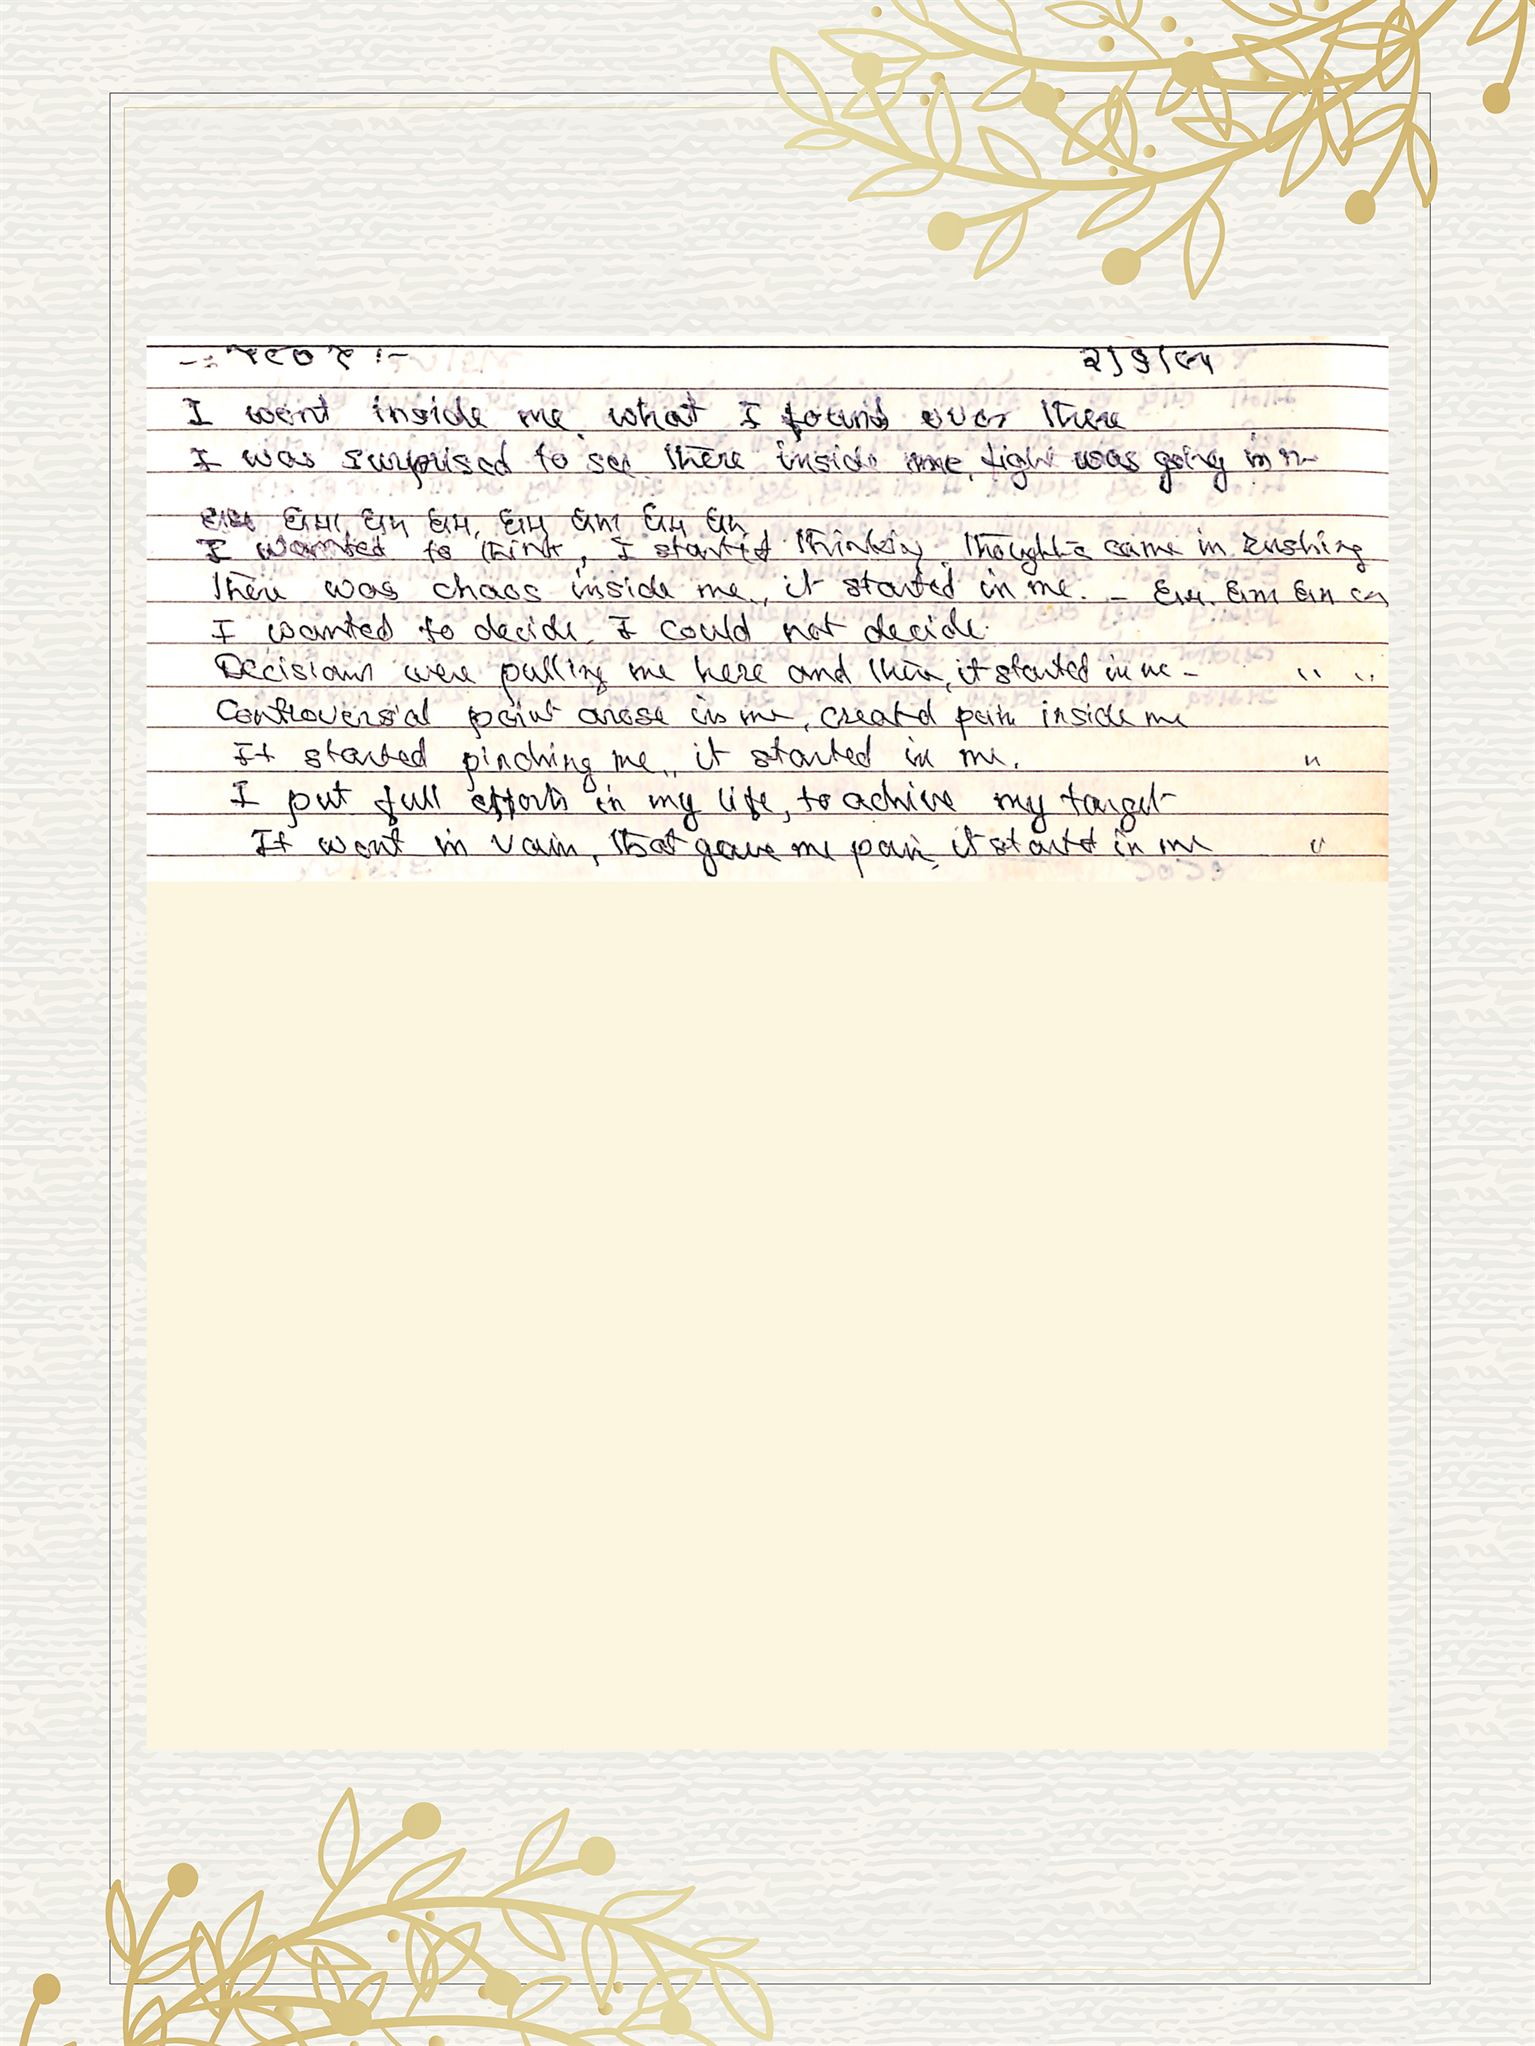 I went inside me, what I found over there
I was surprised to see there inside me, fight was going in
ધમ ધમ ધમ ધમ ધમ ધમ ધમ
I wanted to think, I started thinking, thoughts came in rushing
There was chaos inside me, it started in me. - ધમ ધમ ધમ
I wanted to decide, I could not decide.
Decisions were pulling me here and there, it started in me - " "
Controversial point arose in me, created pain inside me
It started pinching me, it started in me. "
I put full efforts in my life, to achive my target
It went in vain, that gave me pain, it started in me "